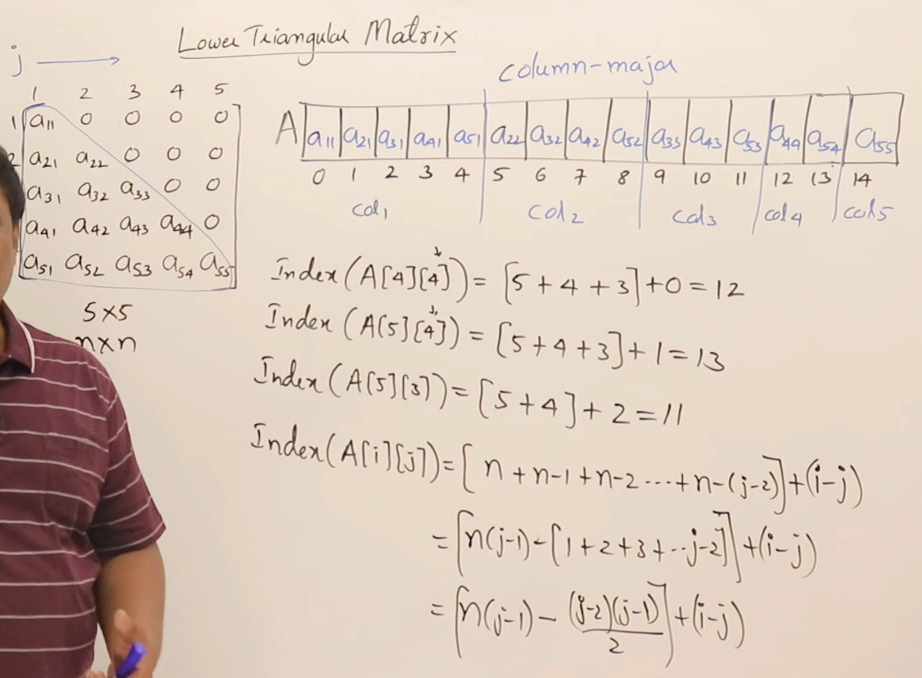 Lower Triangular Matrix
j
column-major
1 2 3 4 5
1 a11 0 0 0 0
2 a21 a22 0 0 0
a31 a32 a33 0 0
a41 a42 a43 a44 0
a51 a52 a53 a54 a55
5×5
n×n
A a11 a21 a31 a41 a51 a22 a32 a42 a52 a33 a43 a53 a44 a54 a55
0 1 2 3 4 5 6 7 8 9 10 11 12 13 14
col1 col2 col3 col4 col5
Index(A[4][4]) = [5+4+3]+0=12
Index(A[5][4]) = [5+4+3]+1=13
Index(A[5][3]) = [5+4]+2=11
Index(A[i][j]) = [n+n-1+n-2---+n-(j-2)]+(i-j)
= [n(j-1)-[1+2+3+--j-2]]+(i-j)
= [n(j-1)-(j-2)(j-1)/2]+(i-j)